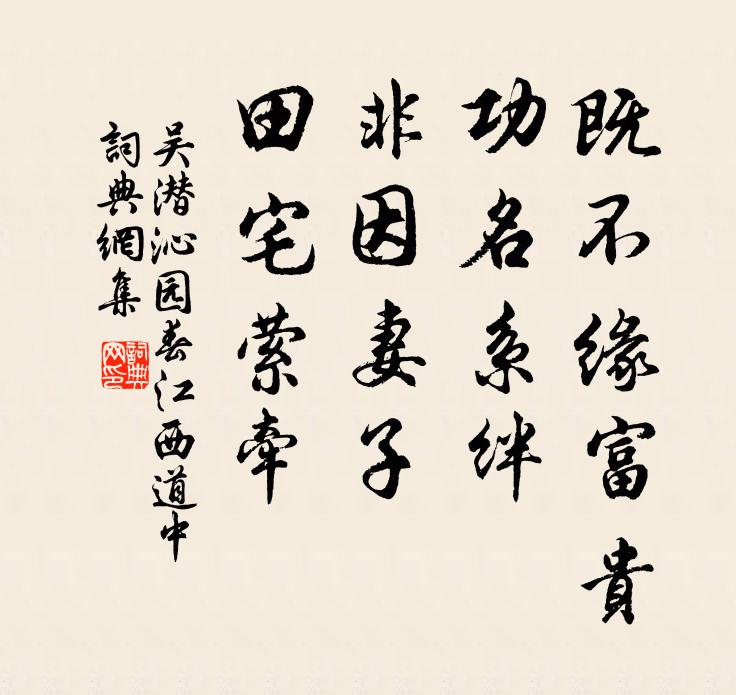 既不缘富貴
功名系绊
非因妻子
田宅萦牵
吴潜沁园春江西道中
詞典網集
詞典网印